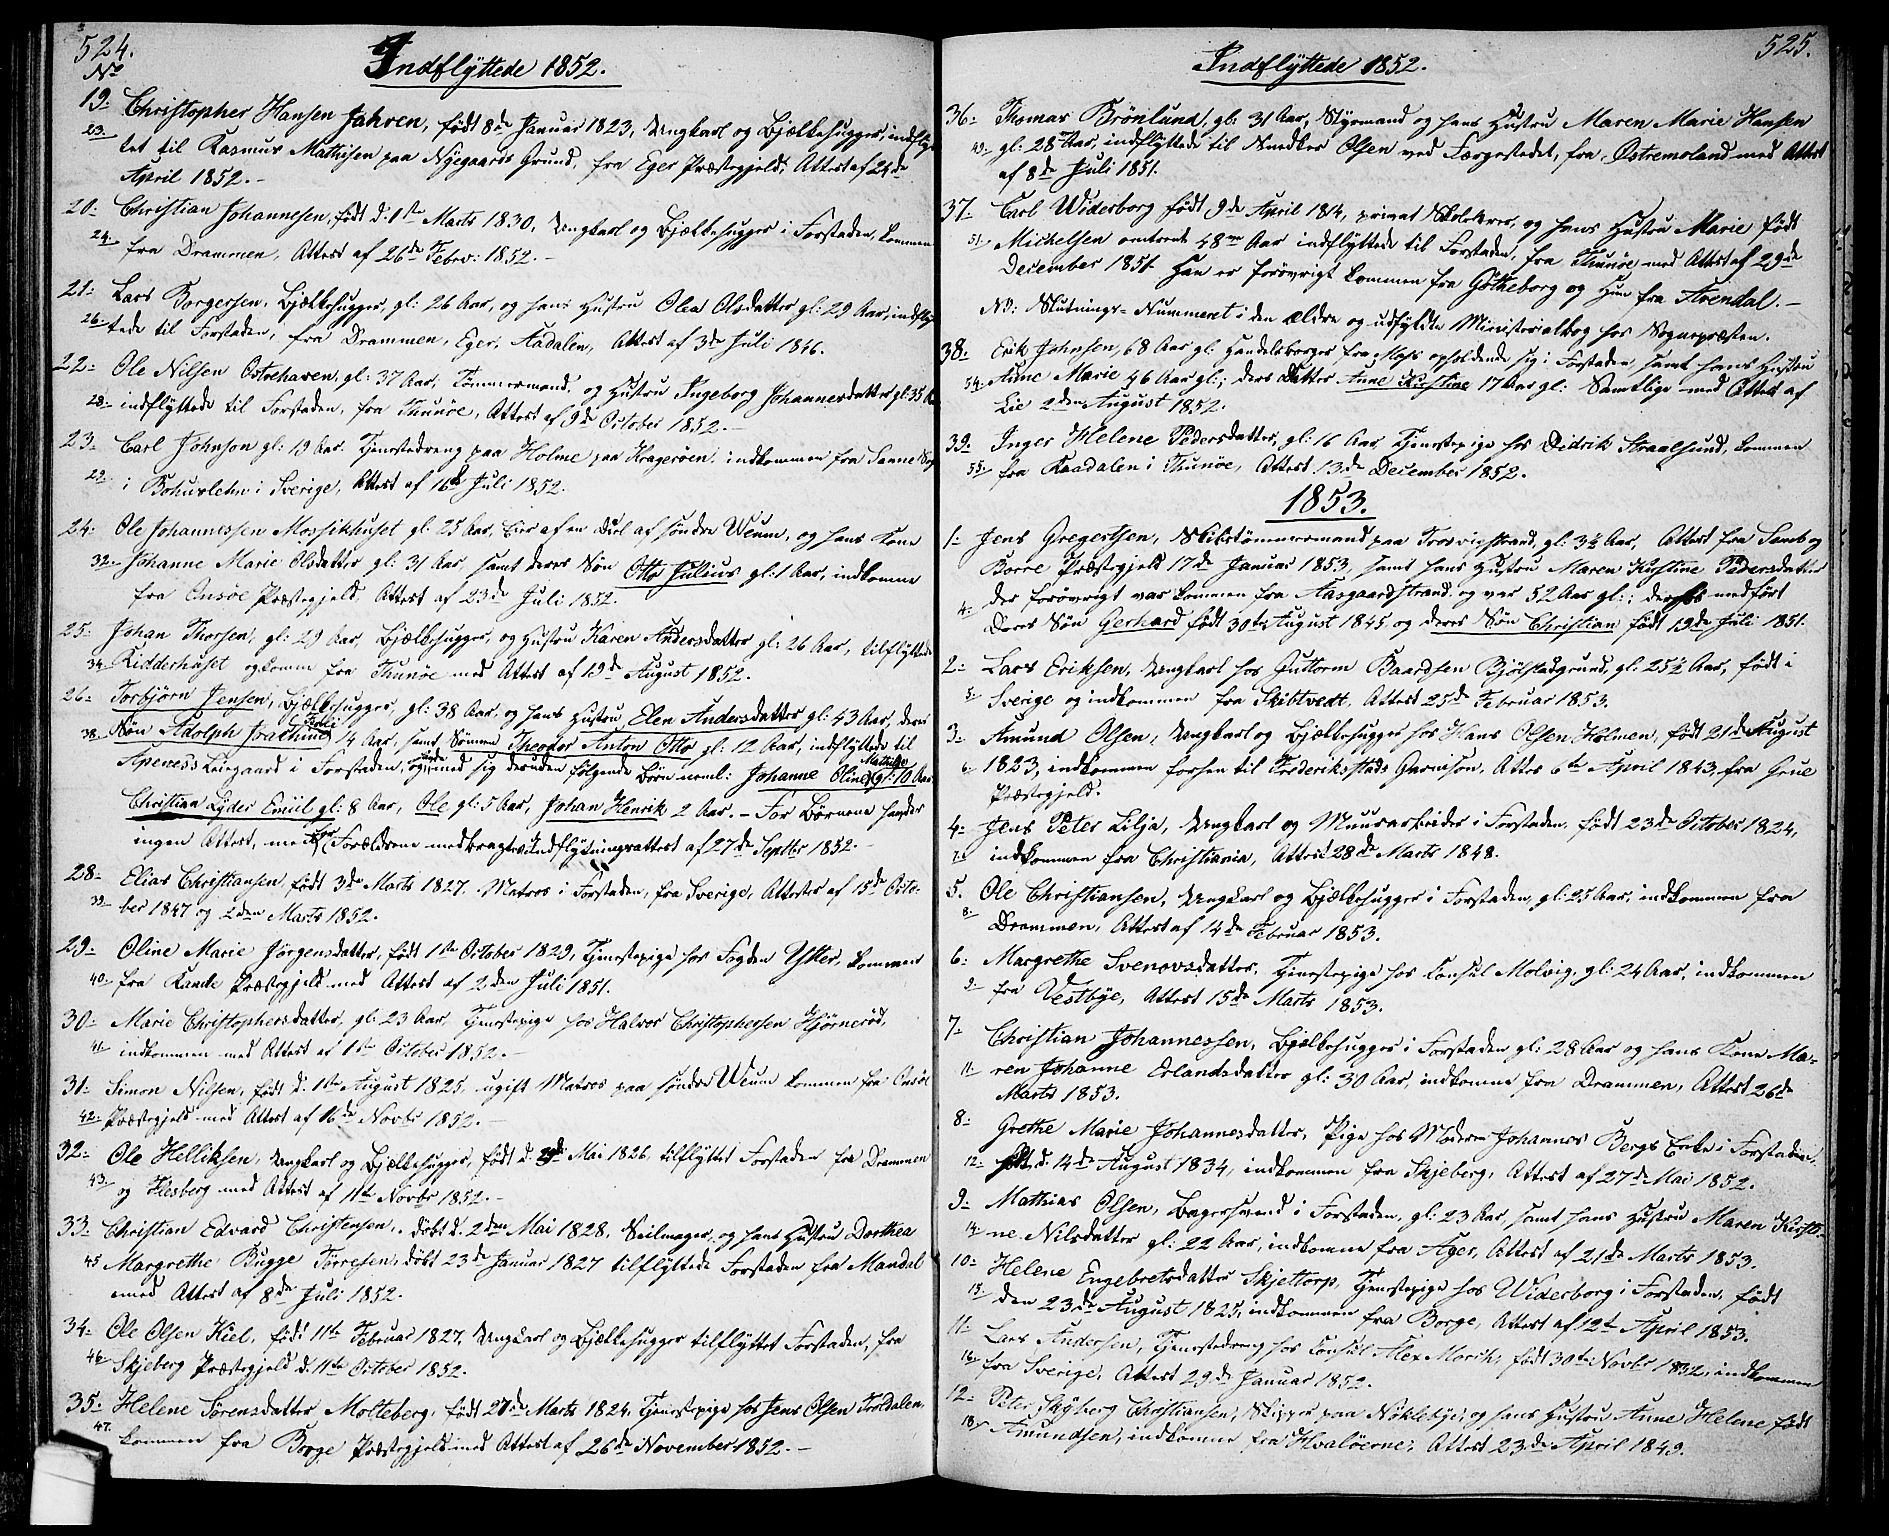 524.
No
Indflÿttede 1852.
19. Christopher Hansen Jahren, født 8de Januar 1823, Ungkarl og Bjælkehugger, indflÿt-
23. tet til Rasmus Mathisen paa Nÿegaards Grund, fra Eger Præstegjeld, Attest af 24de
April 1852.-
20. Christian Johannesen, født d: 1ste Marts 1830, Ungkarl og Bjælkehugger i Forstaden, kommen
24. fra Drammen, Attest af 26de Febrv: 1852.-
21. Lars Borgersen, Bjælkehugger, gl: 26 Aar, og hans Hustru Olea Olsdatter gl: 29 Aar, indflÿt
26. tede til Forstaden, fra Drammen, Eger, Aadalen, Attest af 3de Juli 1846.
22. Ole Nilsen Ostrehaven, gl: 37 Aar, Tømmermand, og Hustru Ingeborg Johannesdatter gl: 35 Aar
28. indflÿttede til Forstaden, fra Thunöe, Attest af 9de October 1852.-
23. Carl Johnson gl: 19 Aar. Tjenestedreng paa Holme paa Kragerøen, indkommen fra Sanne Sogn
29. i Bohuslehn i Sverige, Attest af 16de Juli 1852.
24. Ole Johannessen Mossikhuset gl: 25 Aar, Eier af en Deel af søndre Weum, og hans Kone
32. Johanne Marie Olsdatter gl: 31 Aar, samt deres Søn Otto Julius gl: 1 Aar, indkomne
fra Onsøe Præstegjeld, Attest af 23de Juli 1852.
25. Johan Thorsen, gl: 29 Aar, Bjælkehugger, og Hustru Karen Andersdatter gl: 26 Aar, tilflÿttede
34. Ridderhuset og komne fra Thunöe med Attest af 19de August 1852.
26. Torbjørn Jensen, Bjælkehugger, gl: 38 Aar, og hans Hustru Elen Andersdatter gl: 43 Aar, deres
38. Søn Adolph Joachim 14 Aar, samt Sønnen Theodor Anton Otto gl: 12 Aar, indflÿttede til
Apenæss Løegaard i Forstaden, og havde med sig desuden følgende Børn neml: Johanne Oline Mathilde gl: 10 Aar
Christian Lÿder Emiil gl: 8 Aar, Ole gl: 5 Aar, Johan Henrik 2 Aar.- For Børnene havdes
ingen Attest, men for Forældrene medbragtes Indflÿtningsattest af 27de Septbr 1852.-
28. Elias Christiansen, født 3de Marts 1827. Matros i Forstaden, fra Sverige, Attester af 15de Octo-
39. ber 1847 og 2den Marts 1852.
29. Oline Marie Jörgensdatter, født 1ste October 1829, Tjenestepige hos Fogden Ÿtter, kommen
40. fra Raade Præstegjeld med Attest af 2den Juli 1851.
30. Marie Christophersdatter, gl: 23 Aar, Tjenestepige hos Halvor Christophersen Hjørnerød,
41. indkommen med Attest af 1ste October 1852.-
31. Simon Nilsen, født d: 1ste August 1825. ugift Matros paa søndre Weum kommen fra Onsöe
42. Præstegjeld med Attest af 16de Novbr 1852.-
32. Ole Helliksen, Ungkarl og Bjælkehugger, født d. Mai 1826, tilflÿttet Forstaden fra Drammen
43. og Flesberg med Attest af 11te Novbr 1852.-
33. Christian Edvard Christensen, døbt d: 2den Mai 1828, Seilmager, og hans Hustru Dorthea
45 Margrethe Bugge Tørresen, døbt 23de Januar 1827 tilflÿttede Forstaden fra Mandal
med Attest af 8de Juli 1852.
34. Ole Olsen Kiel, født 11te Februar 1827, Ungkarl og Bjælkehugger tilflÿttet Forstaden, fra
46. Skjeberg Præstegjeld d. 11te October 1852.
35. Helene Sørensdatter Molteberg, født 27de Marts 1824, Tjenestepige hos Jens Olsen Troldalen,
47. kommen fra Borge Præstegjeld med Attest af 26de November 1852.-
525.
Indflÿttede 1852.
36. Thomas Brönlund, gl: 31 Aar, Stÿrmand og hans Hustru Maren Marie Hansen
49. gl: 28 Aar, indflÿttede til Snedker Olsen ved Færgestedet, fra Østremoland med Attest
af 8de Juli 1851.
37. Carl Widerborg født 9de April 1814, privat Skolelærer, og hans Hustru Marie, født
51. Michelsen omtrent 48 Aar indflÿttede til Forstaden, fra Thunöe, med Attest af 29de
December 1851. Han er forøvrigt kommen fra Götheborg og Hun fra Arendal.-
NB: Slutnings-Nummeret i den ældre og udfÿldte Ministerialbog hos Sognepræsten.
38. Erik Johnsen, 68 Aar gl: Handelsborger fra Moss opholdende sig i Forstaden samt hans Hustru
54. Anne Marie 46 Aar gl:; deres Datter Anne Kirstine 17 Aar gl: Samtlige med Attest af
Lie 2den August 1852.
39. Inger Helene Pedersdatter, gl: 16 Aar Tjenestepige hos Didrik Straalsund, kommen
55. fra Raadalen i Thunöe, Attest 13de December 1852.
1853.
1. Jens Gregertsen, Skibstømmermand paa Trosvigstrand, gl: 34 Aar, Attest fra Sande og
Borre Præstegjeld 17de Januar 1853, samt hans Hustru Maren Kirstine Pedersdatter
4. der forøvrigt var kommen fra Aasgaardstrand og var 52 Aar gl:; derhos medført
Deres Søn Gerhard født 30te August 1845 og deres Søn Christian født 19de Juli 1851.
2. Lars Eriksen, Ungkarl hos Guttorm Baardsen Bjölstadgrund, gl: 25½ Aar, født i
5. Sverige og indkommen fra Skibtvedt, Attest 25de Februar 1853.
3. Amund Olsen, Ungkarl og Bjælkehugger hos Hans Olsen Holmen, født 21de August
6. 1823, indkommen forhen til Frederikstads Garnison, Attest 6te April 1843, fra Grue
Præstegjeld.
4. Jens Peter Lilja, Ungkarl og Muurarbeider i Forstaden, født 23de October 1824,
7. indkommen fra Christiania, Attest 28de Marts 1848.
5. Ole Christiansen, Ungkarl og Bjælkehugger i Forstaden, gl: 25 Aar, indkommen fra
8. Drammen, Attest af 14de Februar 1853.
6. Margrethe Svenovsdatter, Tjenestepige hos Consul Molvig, gl: 24 Aar, indkommen
9. fra Vestbÿe, Attest 15de Marts 1853.
7. Christian Johannessen, Bjælkehugger i Forstaden gl: 28 Aar og hans Kone Ma-
11. ren Johanne Erlandsdatter gl: 30 Aar, indkomne fra Drammen, Attest 26de
Marts 1853.
8. Grethe Marie Johannesdatter, Pige hos Moderen Johannes Bergs Enke i Forstaden,
12. født d. 14de August 1834, indkommen fra Skjeberg, Attest af 27de Mai 1852.
9. Mathias Olsen, Bagersvend i Forstaden, gl: 23 Aar samt hans Hustru Maren Kirsti-
14. ne Nilsdatter gl: 22 Aar, indkomne fra Ager, Attest af 21de Marts 1853.
10. Helene Engebretsdatter Skjettorp, Tjenestepige hos Widerborg i Forstaden, født
15. den 23de August 1825, indkommen fra Borge, Attest af 12te April 1853.
11. Lars Andersen, Tjenestedreng hos Consul Alex Morih, født 30te Novbr 1832, indkommen
16. fra Sverige, Attest 29de Januar 1852.
12. Peter Skÿberg Christiansen, Skipper paa Nöklebÿe, og hans Hustru Anne Helene født
18. Amundsen, indkomne fra Hvaløerne, Attest 23de April 1849.